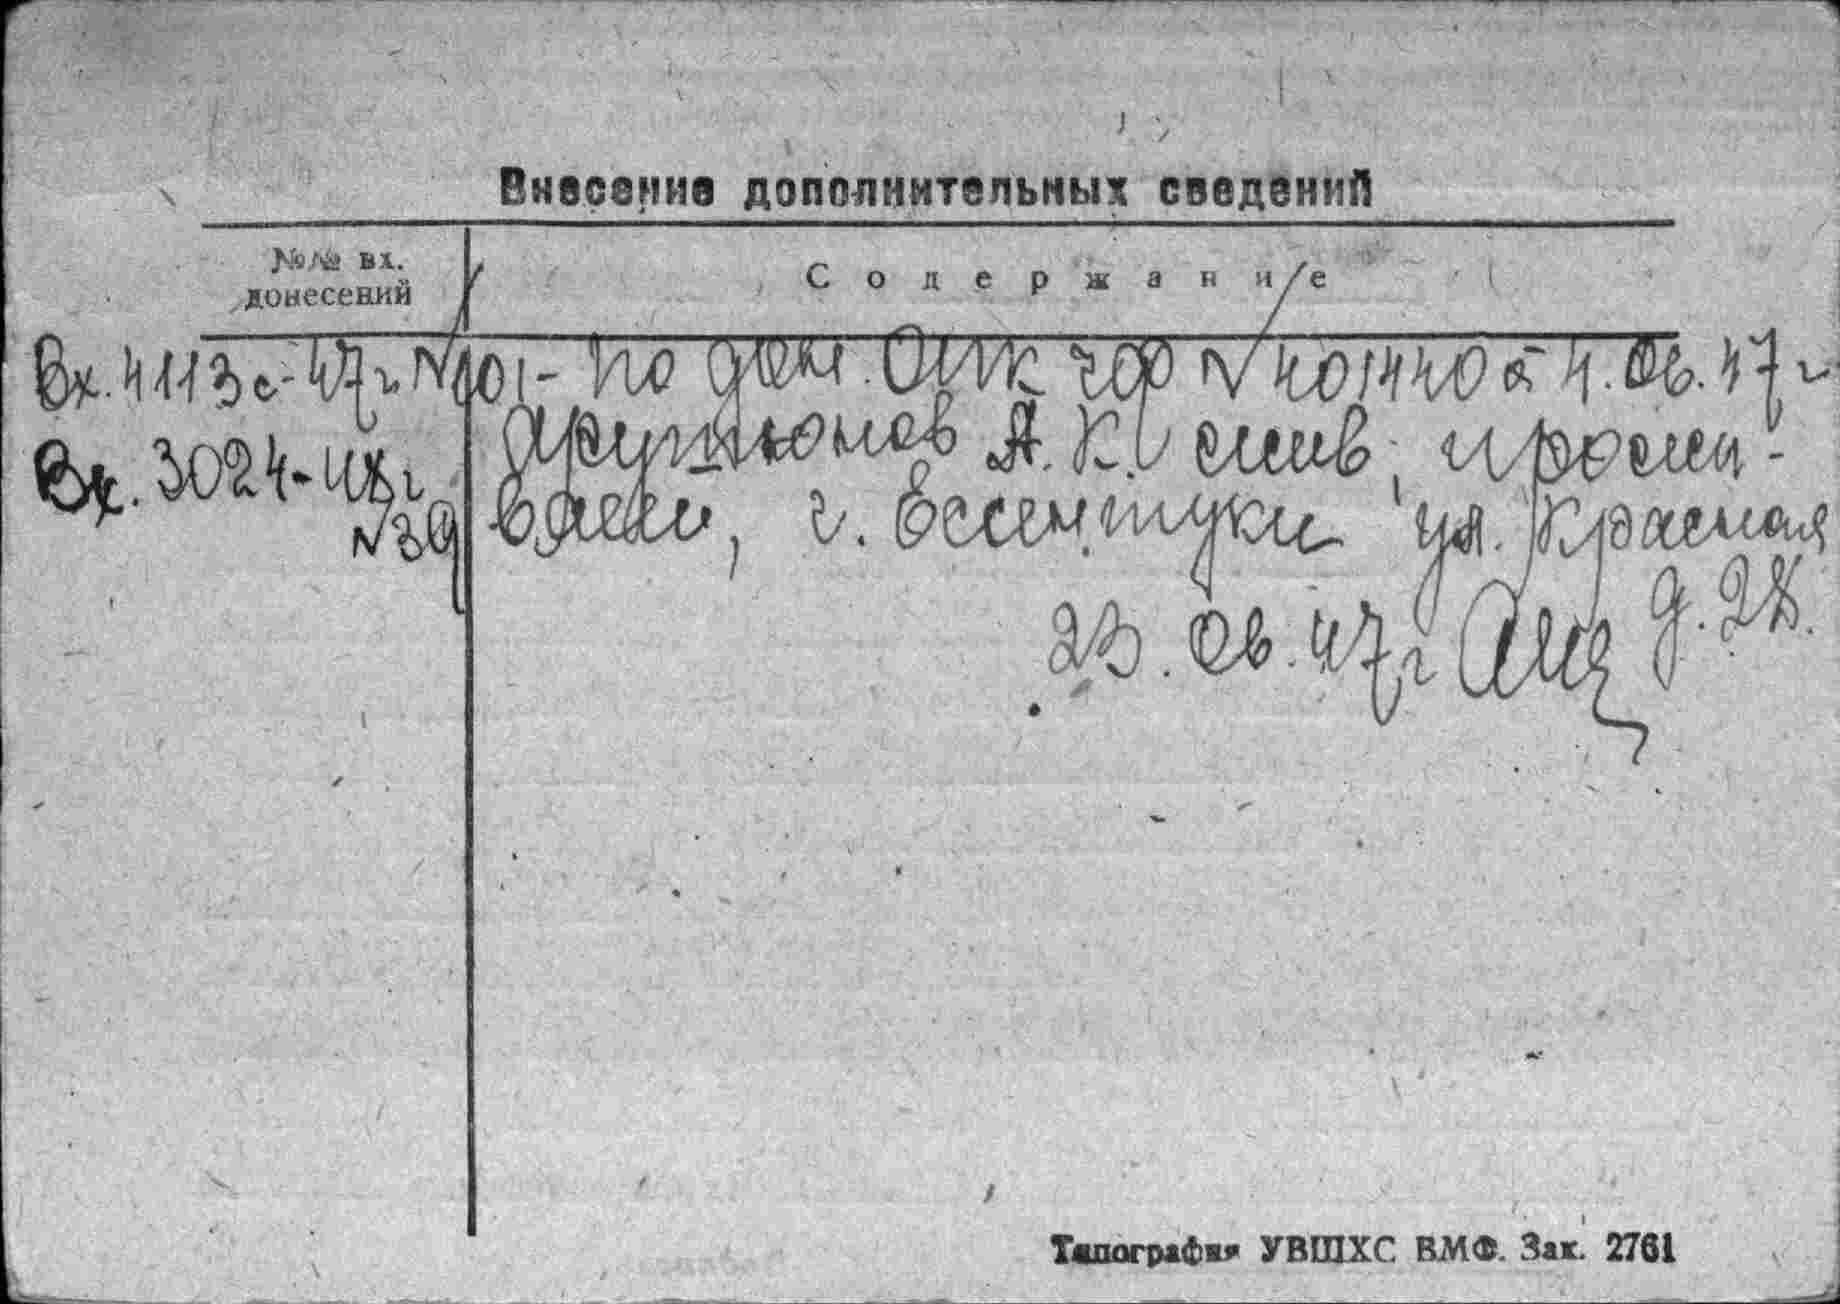 Внесение дополнительных сведений
№№ вх.
донесений
Содержание
Вх. 4113с-47г N101- по дон. ОПК ЧФ N 401440 от 4.06.47г
Вх. 3024-48г
N39
Арутюнов А.К. жив, прожи-
вает, г. Ессентуки ул. Красная
д. 28.
23.06.47г
Типография УВШХС ВМФ. Зак. 2761